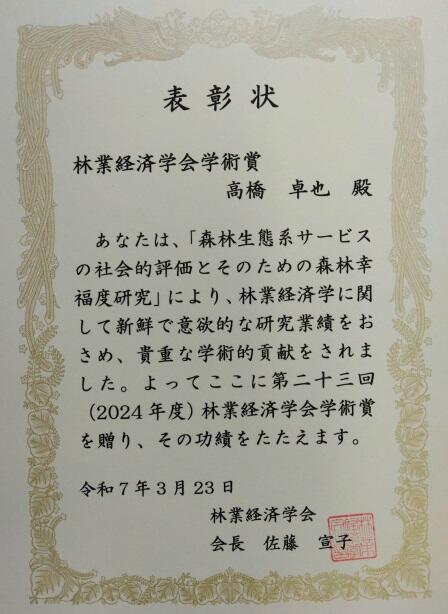 表彰状
林業経済学会学術賞
高橋 卓也 殿
あなたは、「森林生態系サービス
の社会的評価とそのための森林幸
福度研究」により、林業経済学に関
して新鮮で意欲的な研究業績をお
さめ、貴重な学術的貢献をされま
した。よってここに第二十三回
(2024年度)林業経済学会学術賞
を贈り、その功績をたたえます。
令和7年3月23日
林業経済学会
会長 佐藤 宣子